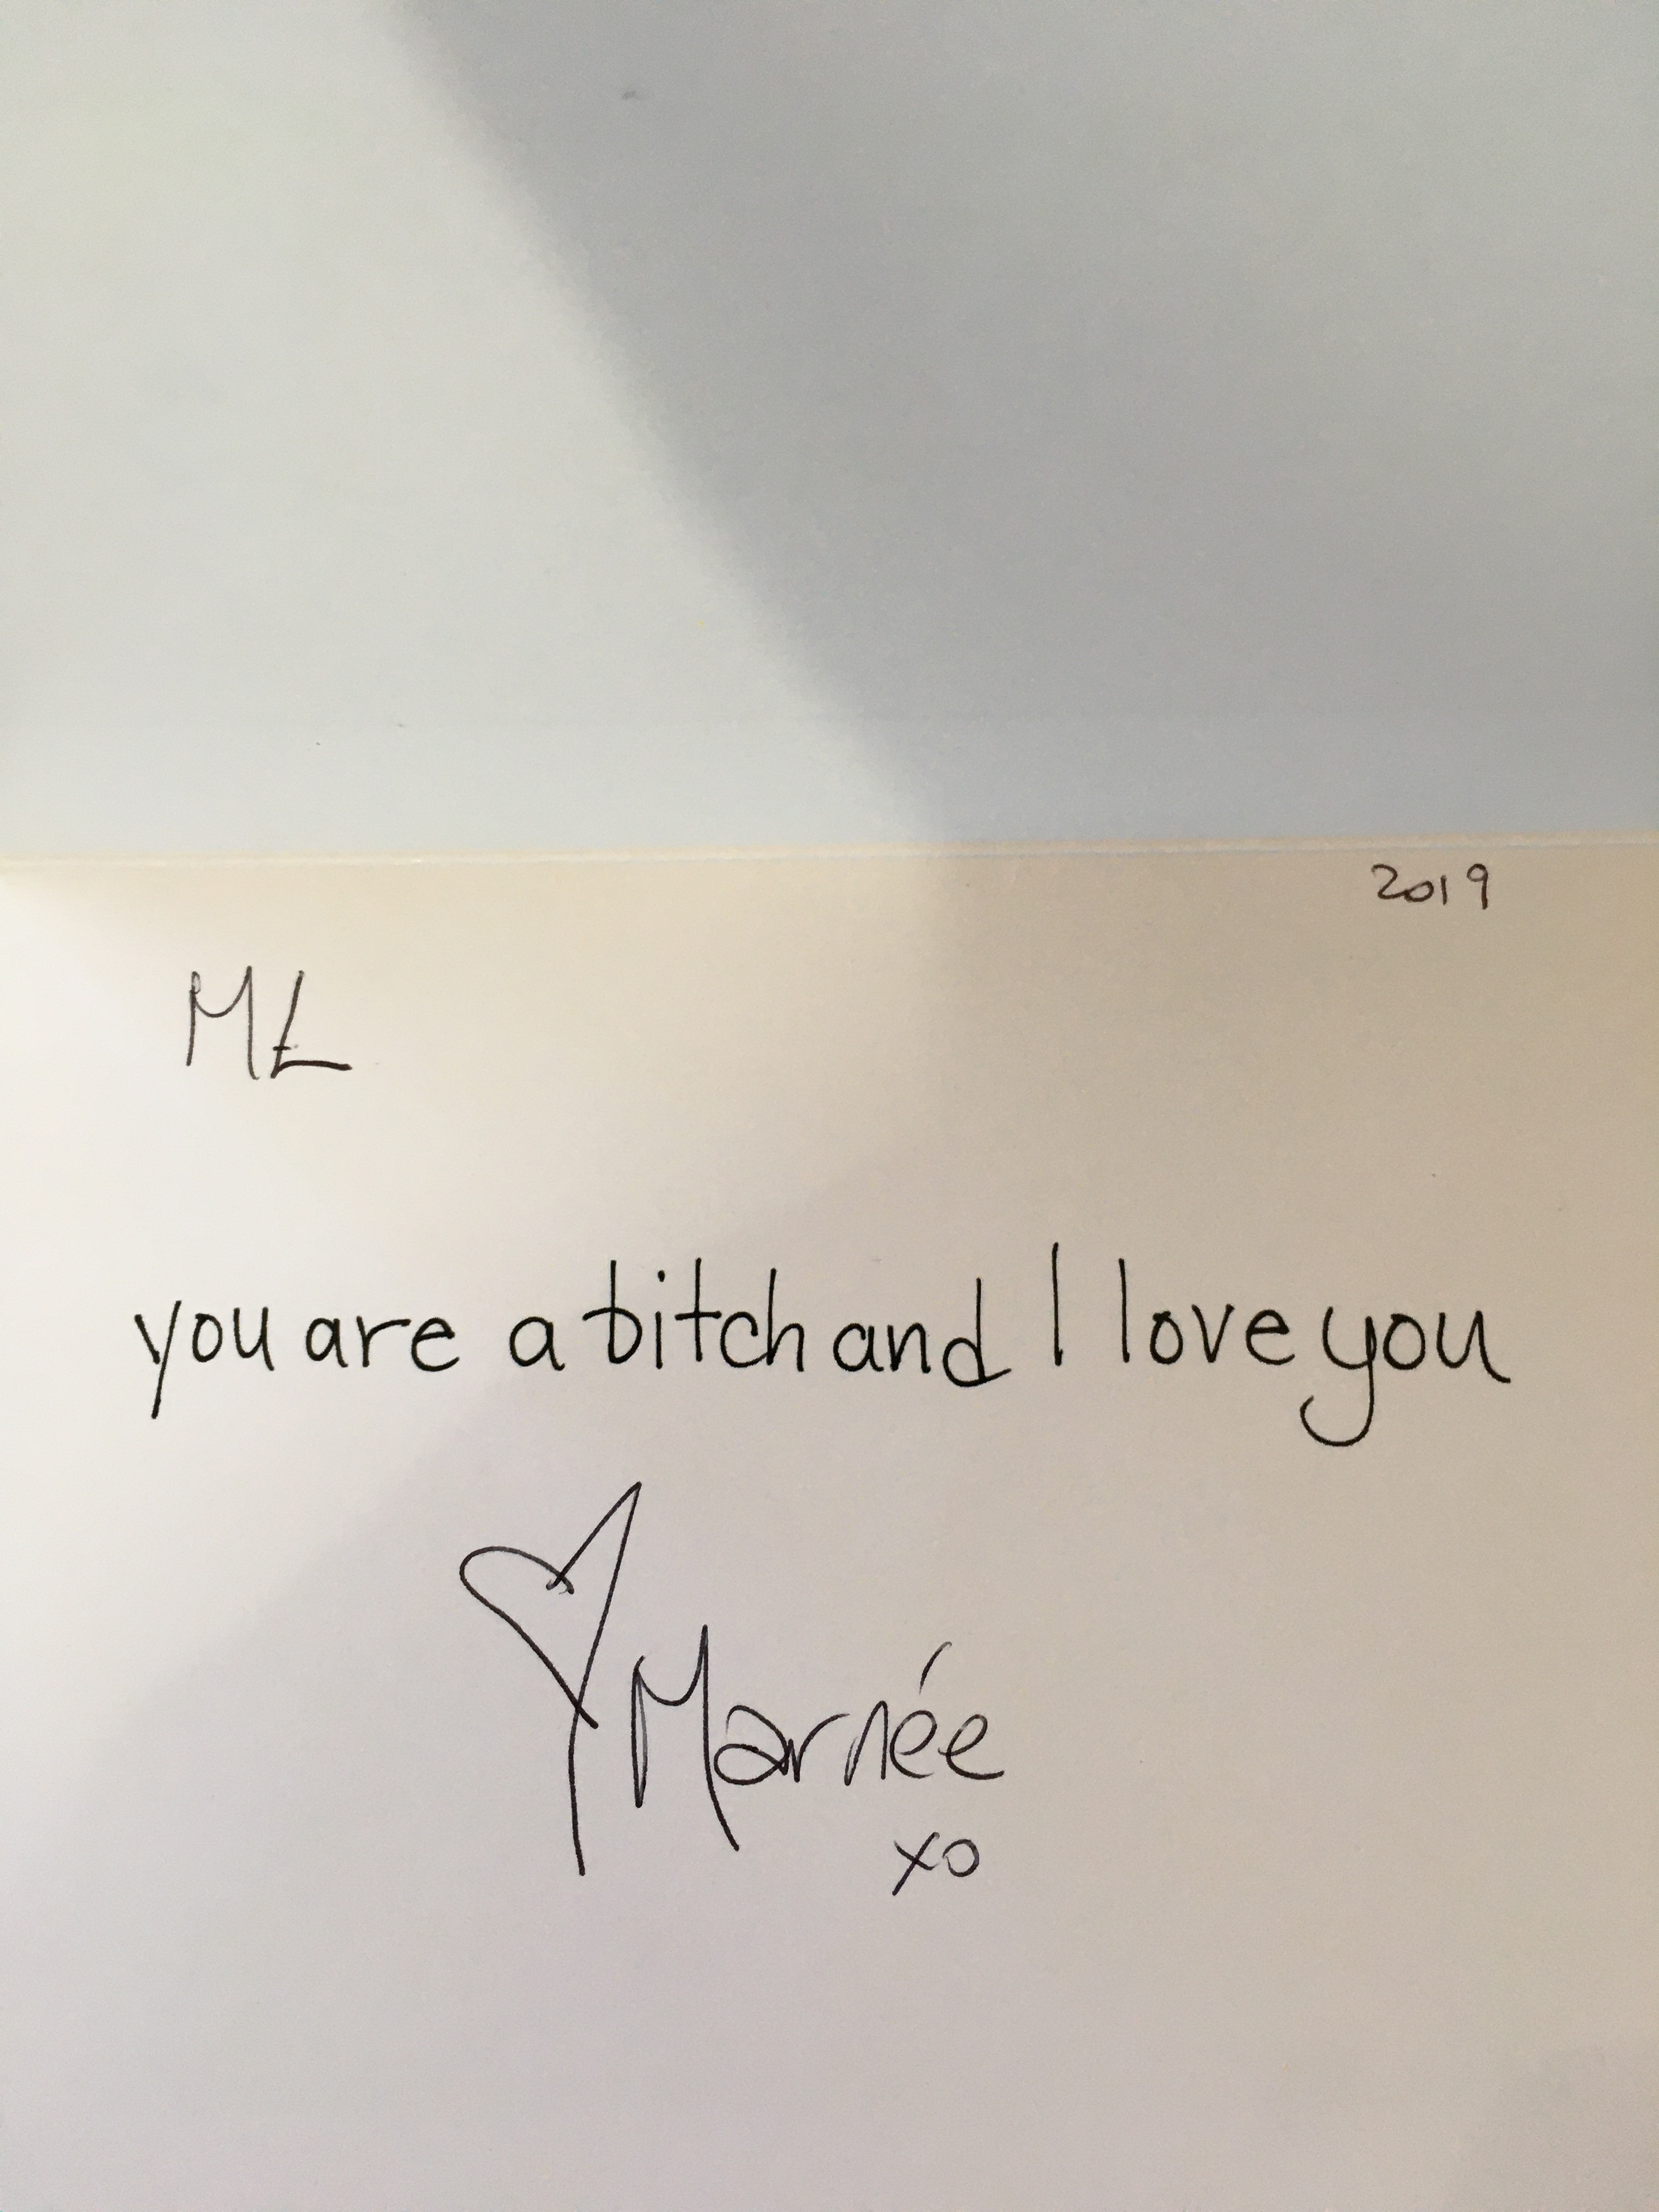 2019
ML
you are a bitch and I love you
Marnée
xo